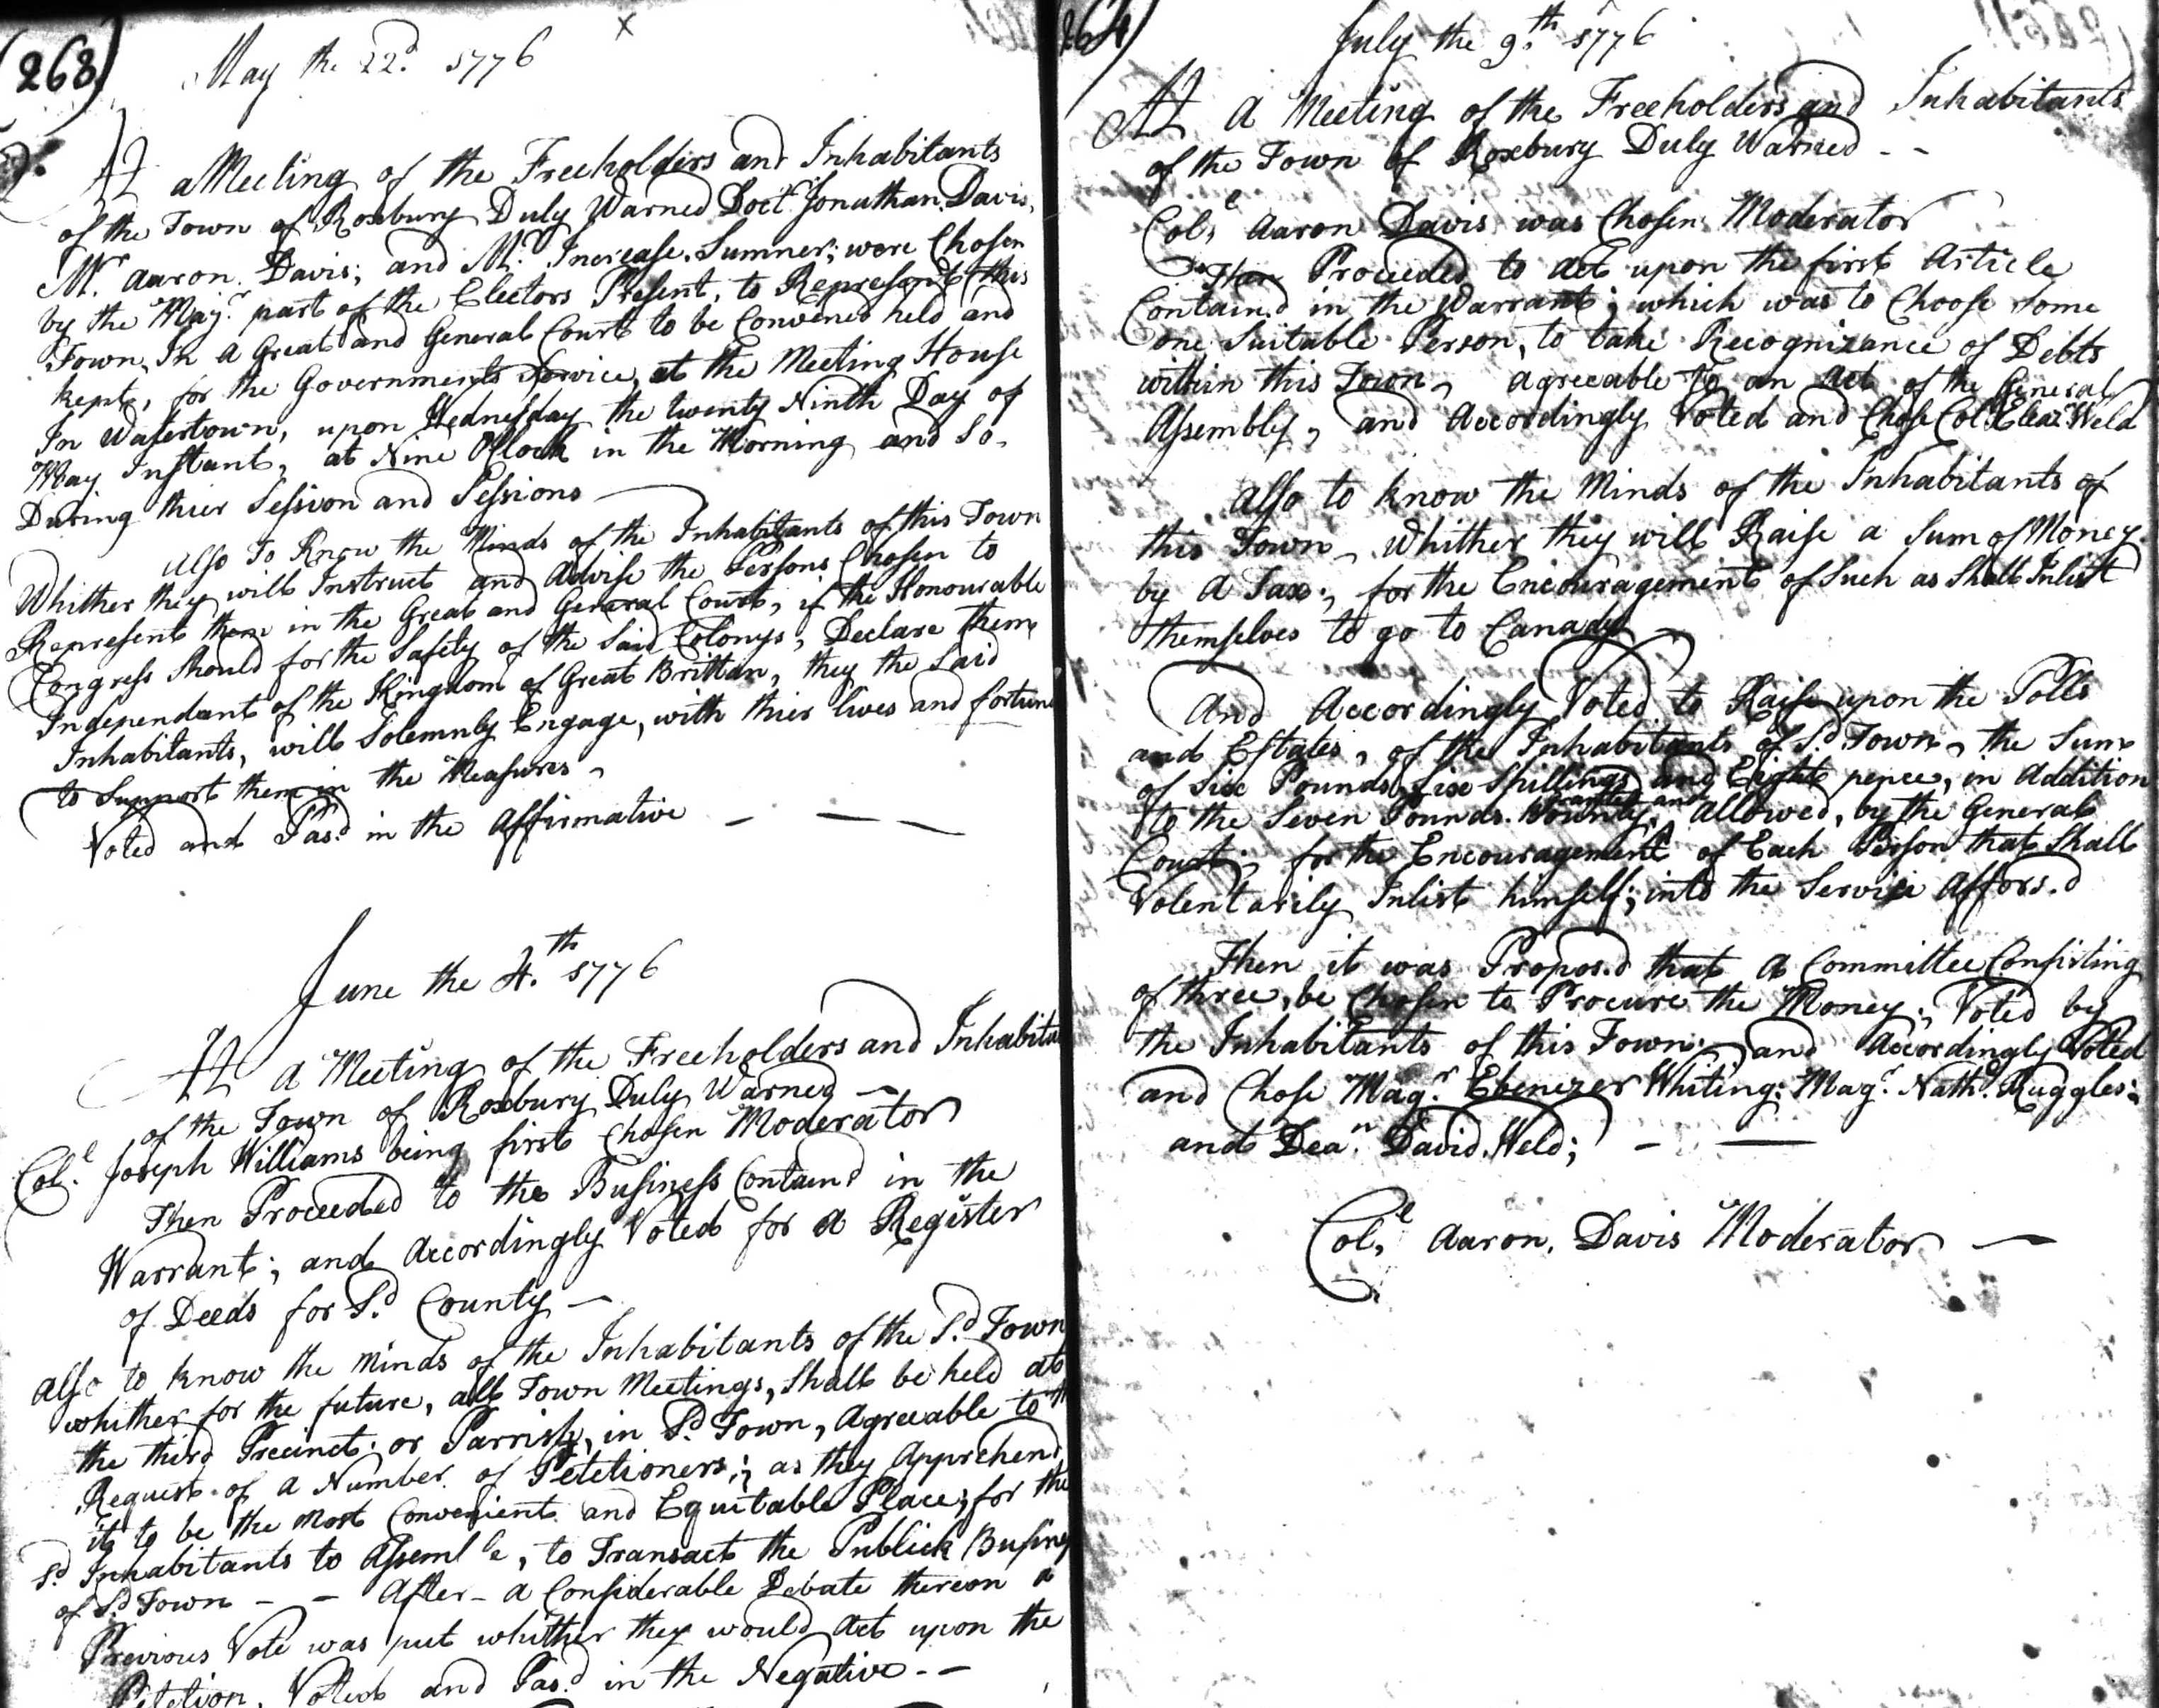 (263)
May the 22d. 1776
At a Meeting of the Freeholders and Inhabitants
of the Town of Roxbury Duly Warned Doct.r Jonathan Davis,
Mr. Aaron Davis; and Mr. Increase Sumner; were Chosen
by the Majr. part of the Electors Present, to Represent this
Town, In a Great and General Court to be Convened held and
kept, for the Governments Service, at the Meeting House
In Watertown, upon Wednesday the twenty Ninth Day of
May Instant, at Nine OClock in the Morning and So
During thier Session and Sessions
Also To Know the Minds of the Inhabitants of this Town
Whither they will Instruct and Advise the Persons Chosen to
Represent them in the Great and General Court, if the Honourable
Congress Should for the Safety of the Said Colonys, Declare them
Independant of the Kingdom of Great Brittan, they the Said
Inhabitants, will Solemnly Engage, with thier lives and fortune
to Support them in the Measures,
Voted and Pas.d in the Affirmative — —
June the 4.th 1776
At a Meeting of the Freeholders and Inhabita
of the Town of Roxbury Duly Warned —
Col.l Joseph Williams being first Chosen Moderator
Then Proceeded to the Business Contain'd in the
Warrant; and Accordingly Voted for a Register
of Deeds for S.d County —
Also to know the minds of the Inhabitants of the S.d Town
whither for the future, all Town Meetings, Shall be held at
the third Precinct, or Parrish, in S.d Town, Agreeable to th
Request of a Number of Petetioners; as they Apprehend
it to be the most Convenient and Equitable Place; for the
S.d Inhabitants to Assemble, to Transact the Publick Busines
of S.d Town - - After - a Considerable Debate thereon a
Previous Vote was put whither they would Act upon the
Petetion, Voted and Pas.d in the Negative - -
264)
July the 9.th 1776
At a Meeting of the Freeholders and Inhabitants
of the Town of Roxbury Duly Warned - -
Col.l Aaron Davis was Chosen Moderator
Then Proceeded to Act upon the first Article
Contain.d in the Warrant; which was to Choose Some
one Suitable Person, to take Recognizance of Debts
within this Town, agreeable to an Act of the General
Assembly, and Accordingly Voted and Chose Col.l Eleaz.r Weld
Also to know the Minds of the Inhabitants of
this Town, Whither they will Raise a Sum of Money
by a Tax, for the Encouragement of Such as Shall Inlist
themselves to go to Canady
And Accordingly Voted to Raise upon the Polls
and Estates, of the Inhabitants of S.d Town, the Sum
of Six Pounds, Six Shillings and Eight pence, in Addition
to the Seven Pounds Bounty, granted and allowed, by the General
Court; for the Encouragement of Each Person that Shall
Volentarily Inlist himself; into the Service Affors.d
Then it was Propos.d that a Committee Consisting
of three, be Chosen to Procure the Money; Voted by
the Inhabitants of this Town; and Accordingly Voted
and Chose Magr. Ebenezer Whiting: Magr. Nath.l Ruggles;
and Dea.n David Weld; — —
Col.l Aaron Davis Moderator —